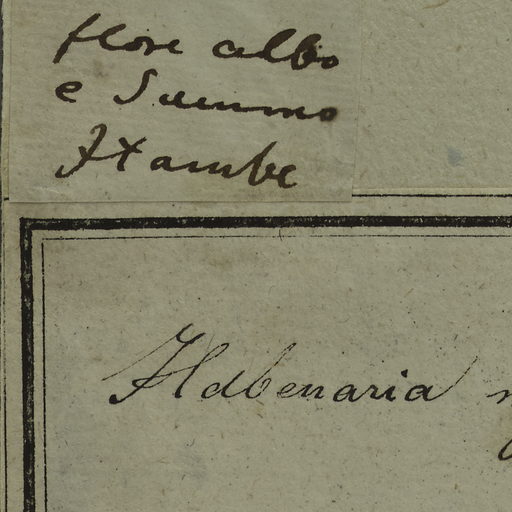 flore albo
e Summo
Itambe
Habenaria